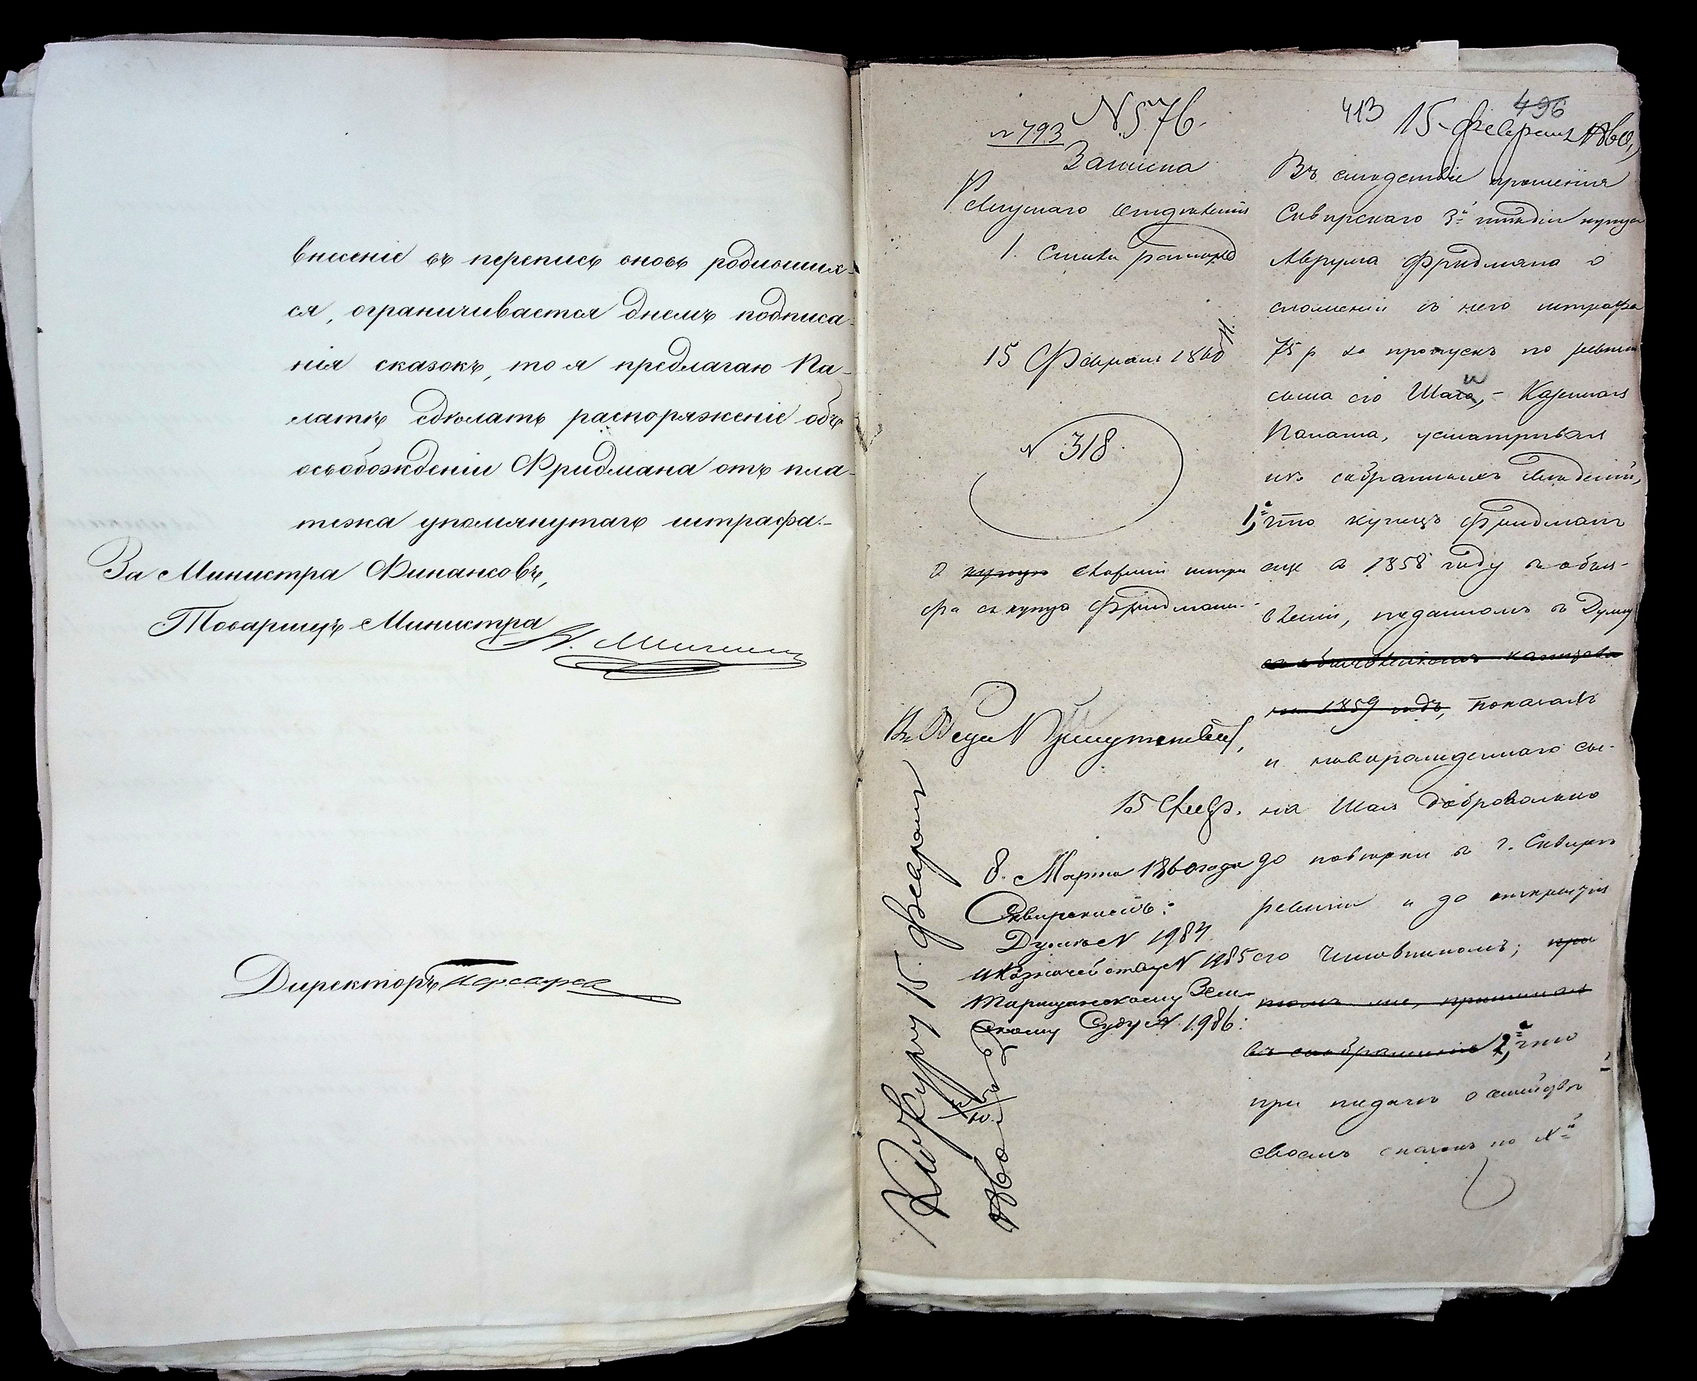 внесеніе въ перепись вновь родивших-
ся, ограничивается днемъ подписа-
нія сказокъ, то я предлагаю Па-
латѣ сдѣлать распоряженіе объ
освобожденіи Фридмана отъ пла-
тежа упомянутаго штрафа.-
За Министра Финансовъ,
Товарищъ Министра
Директоръ
N 576.
N 793
Записка
Ревизскаго отдѣленія
1. стола
15 Февраля 1860
N 318.
О взысканіи штра
фа съ купца Фридмана.
15 Февр.
8. Марта 1860 года
Сквирскимъ:
Думѣ N 1984
и Казначейству N 1985
Таращанскому Зем-
скому Суду N 1986:
15 Февраля
413
496
15 Февраля 1860,
Въ слѣдствіе прошенія
Сквирскаго 3й гильдіи купца
Аврума Фридмана о
сложеніи съ него штрафа
75 р за пропускъ по ревизіи
сына его Шаи,- Казенная
Палата, усматривая
изъ собранныхъ свѣденій,
1, что купецъ Фридманъ
еще въ 1858 году въ объя-
вленіи, поданномъ въ Думу
на 1859 годъ, показалъ
и новорожденнаго сы-
на Шая добровольно
до повѣрки въ г. Сквирѣ
ревизіи и до открытія
его Чиновникомъ; при
2, что
при подачѣ о семействѣ
своемъ сказокъ по Xй